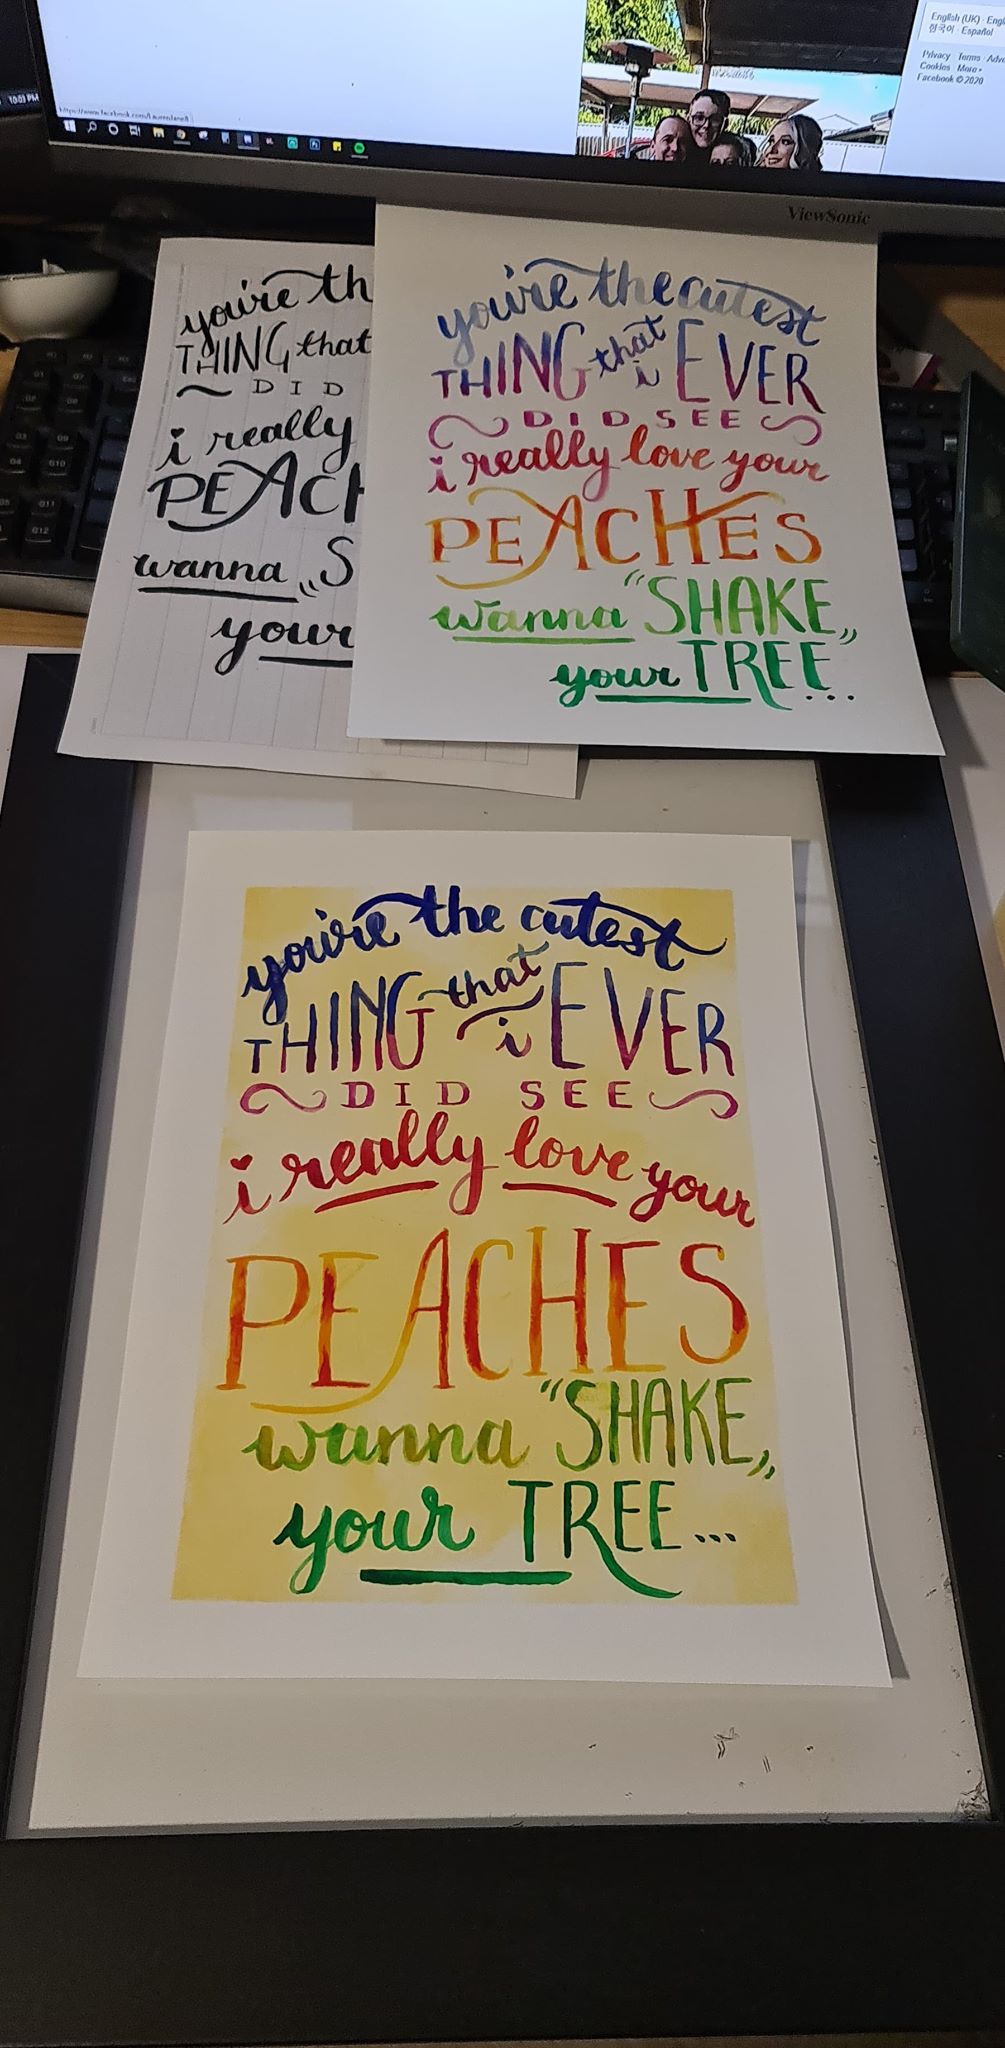 English (UK) · Engl
한국어 · Español
Privacy · Terms · Adve
Cookies · More
Facebook © 2020
10:03 PM
ViewSonic
you're th
THING that
DID
i really
PEACH
wanna „S
your
you're the cutest
THING that i EVER
DID SEE
i really love your
PEACHES
wanna “SHAKE„
your TREE...
you're the cutest
THING that i EVER
DID SEE
i really love your
PEACHES
wanna “SHAKE„
your TREE...